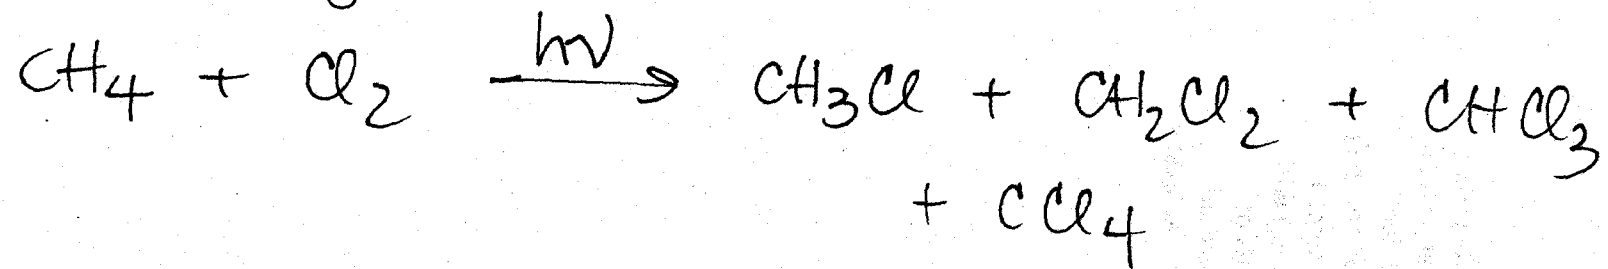 CH₄ + Cl₂ hν → CH₃Cl + CH₂Cl₂ + CHCl₃
+ CCl₄